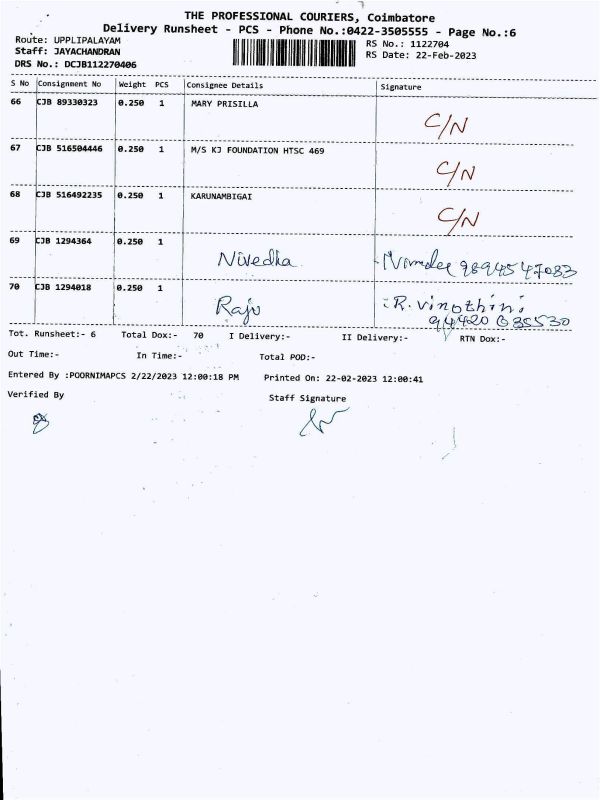 THE PROFESSIONAL COURIERS, Coimbatore
Delivery Runsheet - PCS - Phone No.:0422-3505555 - Page No.:6
Route: UPPLIPALAYAM
Staff: JAYACHANDRAN
DRS No.: DCJB112270406
RS No.: 1122704
RS Date: 22-Feb-2023
S No Consignment No Weight PCS Consignee Details Signature
66 CJB 89330323 0.250 1 MARY PRISILLA C/N
67 CJB 516504446 0.250 1 M/S KJ FOUNDATION HTSC 469 C/N
68 CJB 516492235 0.250 1 KARUNAMBIGAI C/N
69 CJB 1294364 0.250 1 Nivedha 9894547083
70 CJB 1294018 0.250 1 Raju R. Vinothini
Tot. Runsheet:- 6 Total Dox:- 70 I Delivery:- II Delivery:- RTN Dox:-
Out Time:- In Time:- Total POD:-
Entered By :POORNIMAPCS 2/22/2023 12:00:18 PM Printed On: 22-02-2023 12:00:41
Verified By Staff Signature